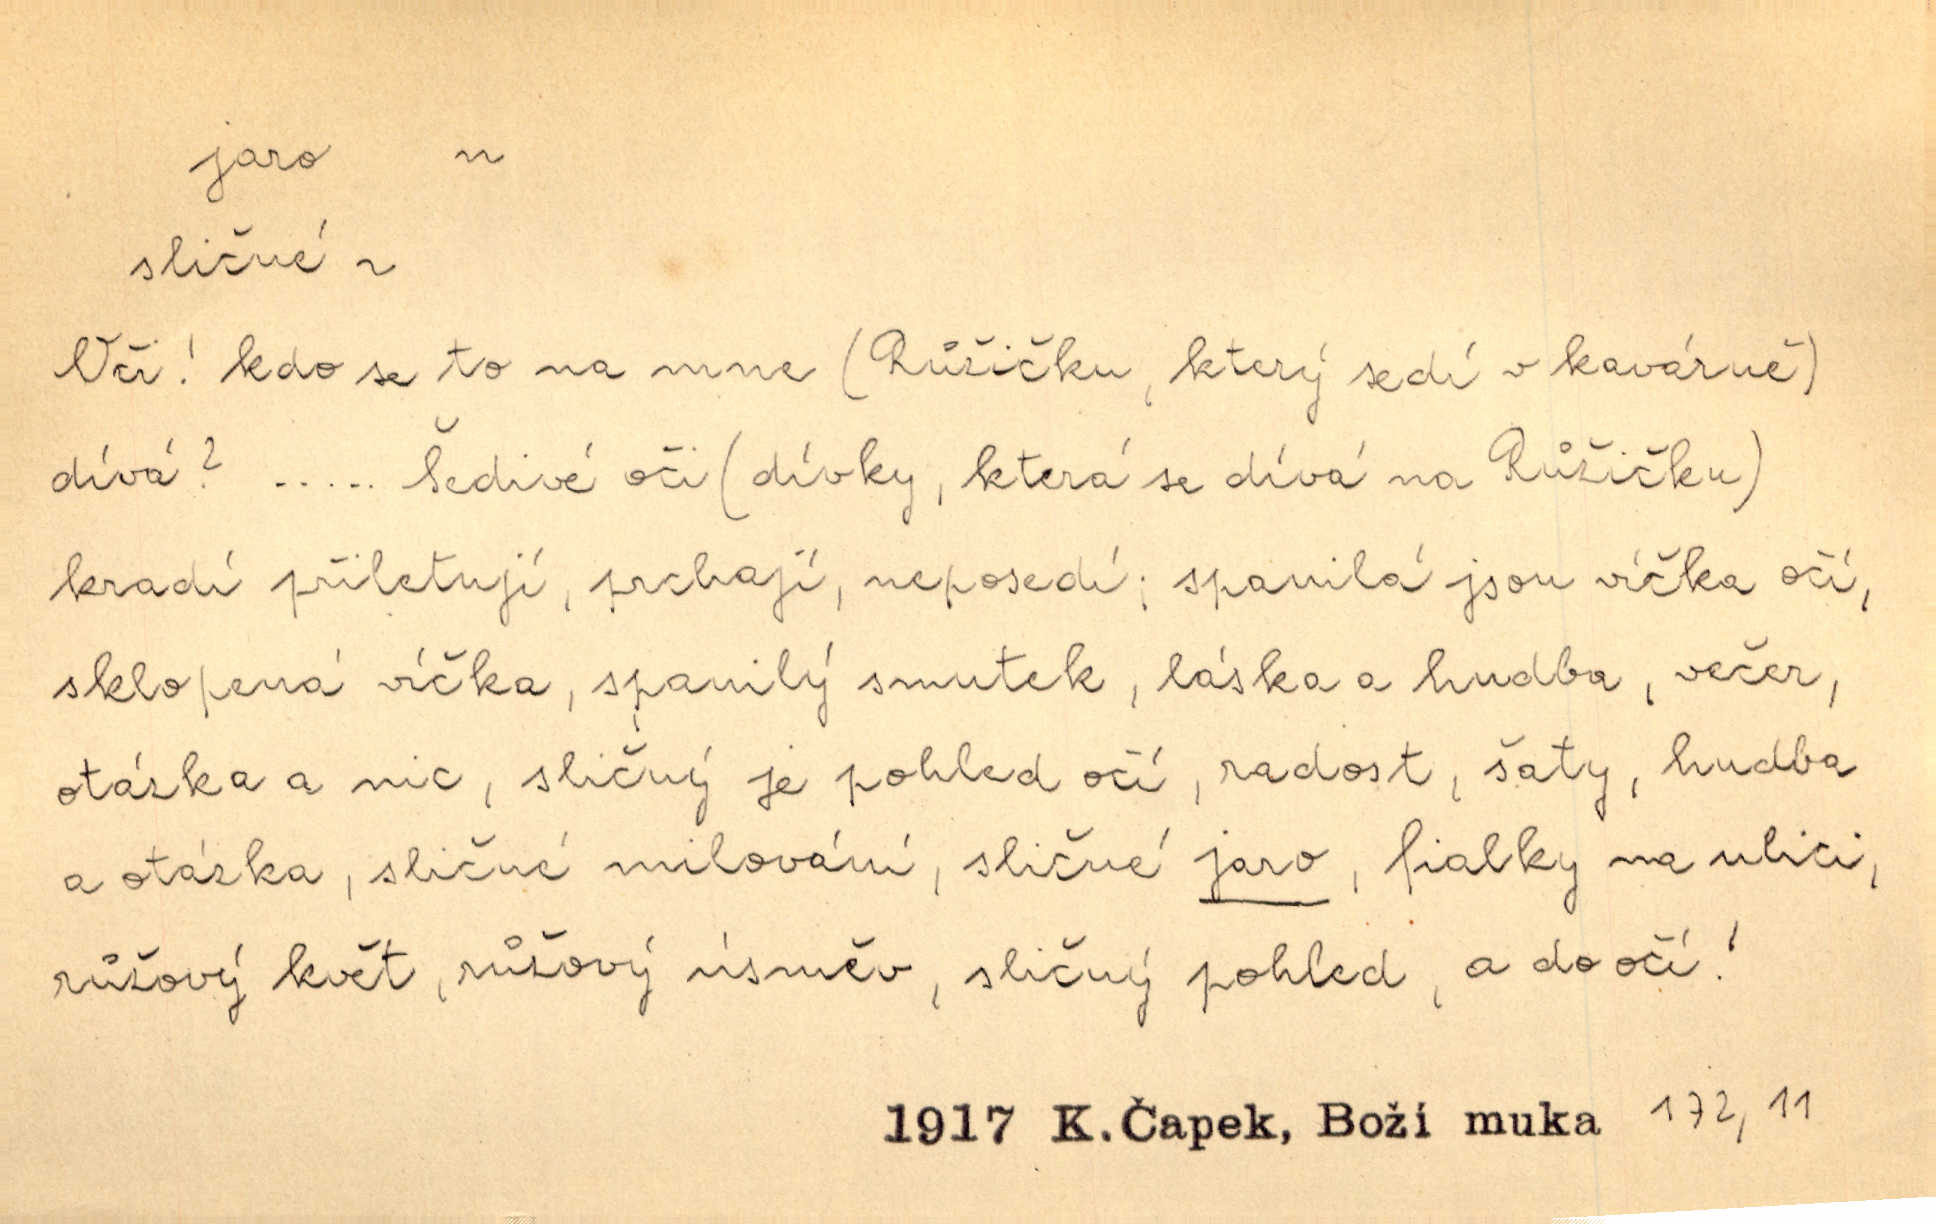 jaro n
sličné ~
Oči! kdo se to na mne (Růžičku, který sedí v kavárně)
dívá? ..... Šedivé oči (dívky, která se dívá na Růžičku)
kradí přiletují, prchají, neposedí; spanilá jsou víčka očí,
sklopená víčka, spanilý smutek, láska a hudba, večer,
otázka a nic, sličný je pohled očí, radost, šaty, hudba
a otázka, sličné milování, sličné jaro, fialky na ulici,
růžový květ, růžový úsměv, sličný pohled, a do očí!
1917 K. Čapek, Boží muka 172, 11